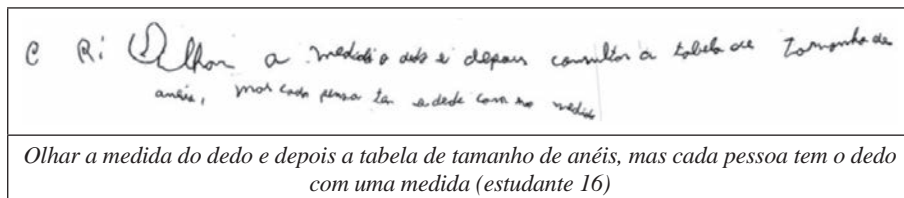 C R: Olhar a medida o dedo e depois consultar a tabela de Tamanho de
anéis, mas cada pessoa tem o dedo com medida
Olhar a medida do dedo e depois a tabela de tamanho de anéis, mas cada pessoa tem o dedo
com uma medida (estudante 16)